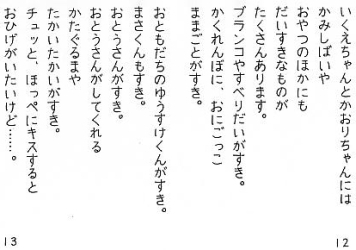 いくえちゃんとかおりちゃんには
かみしばいや
おやつのほかにも
だいすきなものが
たくさんあります。
ブランコやすべりだいがすき。
かくれんぼに、おにごっこ
ままごとがすき。
12
おともだちのゆうすけくんがすき。
まさくんもすき。
おとうさんがすき。
おとうさんがしてくれる
かたぐるまや
たかいたかいがすき。
チュッと、ほっぺにキスすると
おひげがいたいけど……。
13